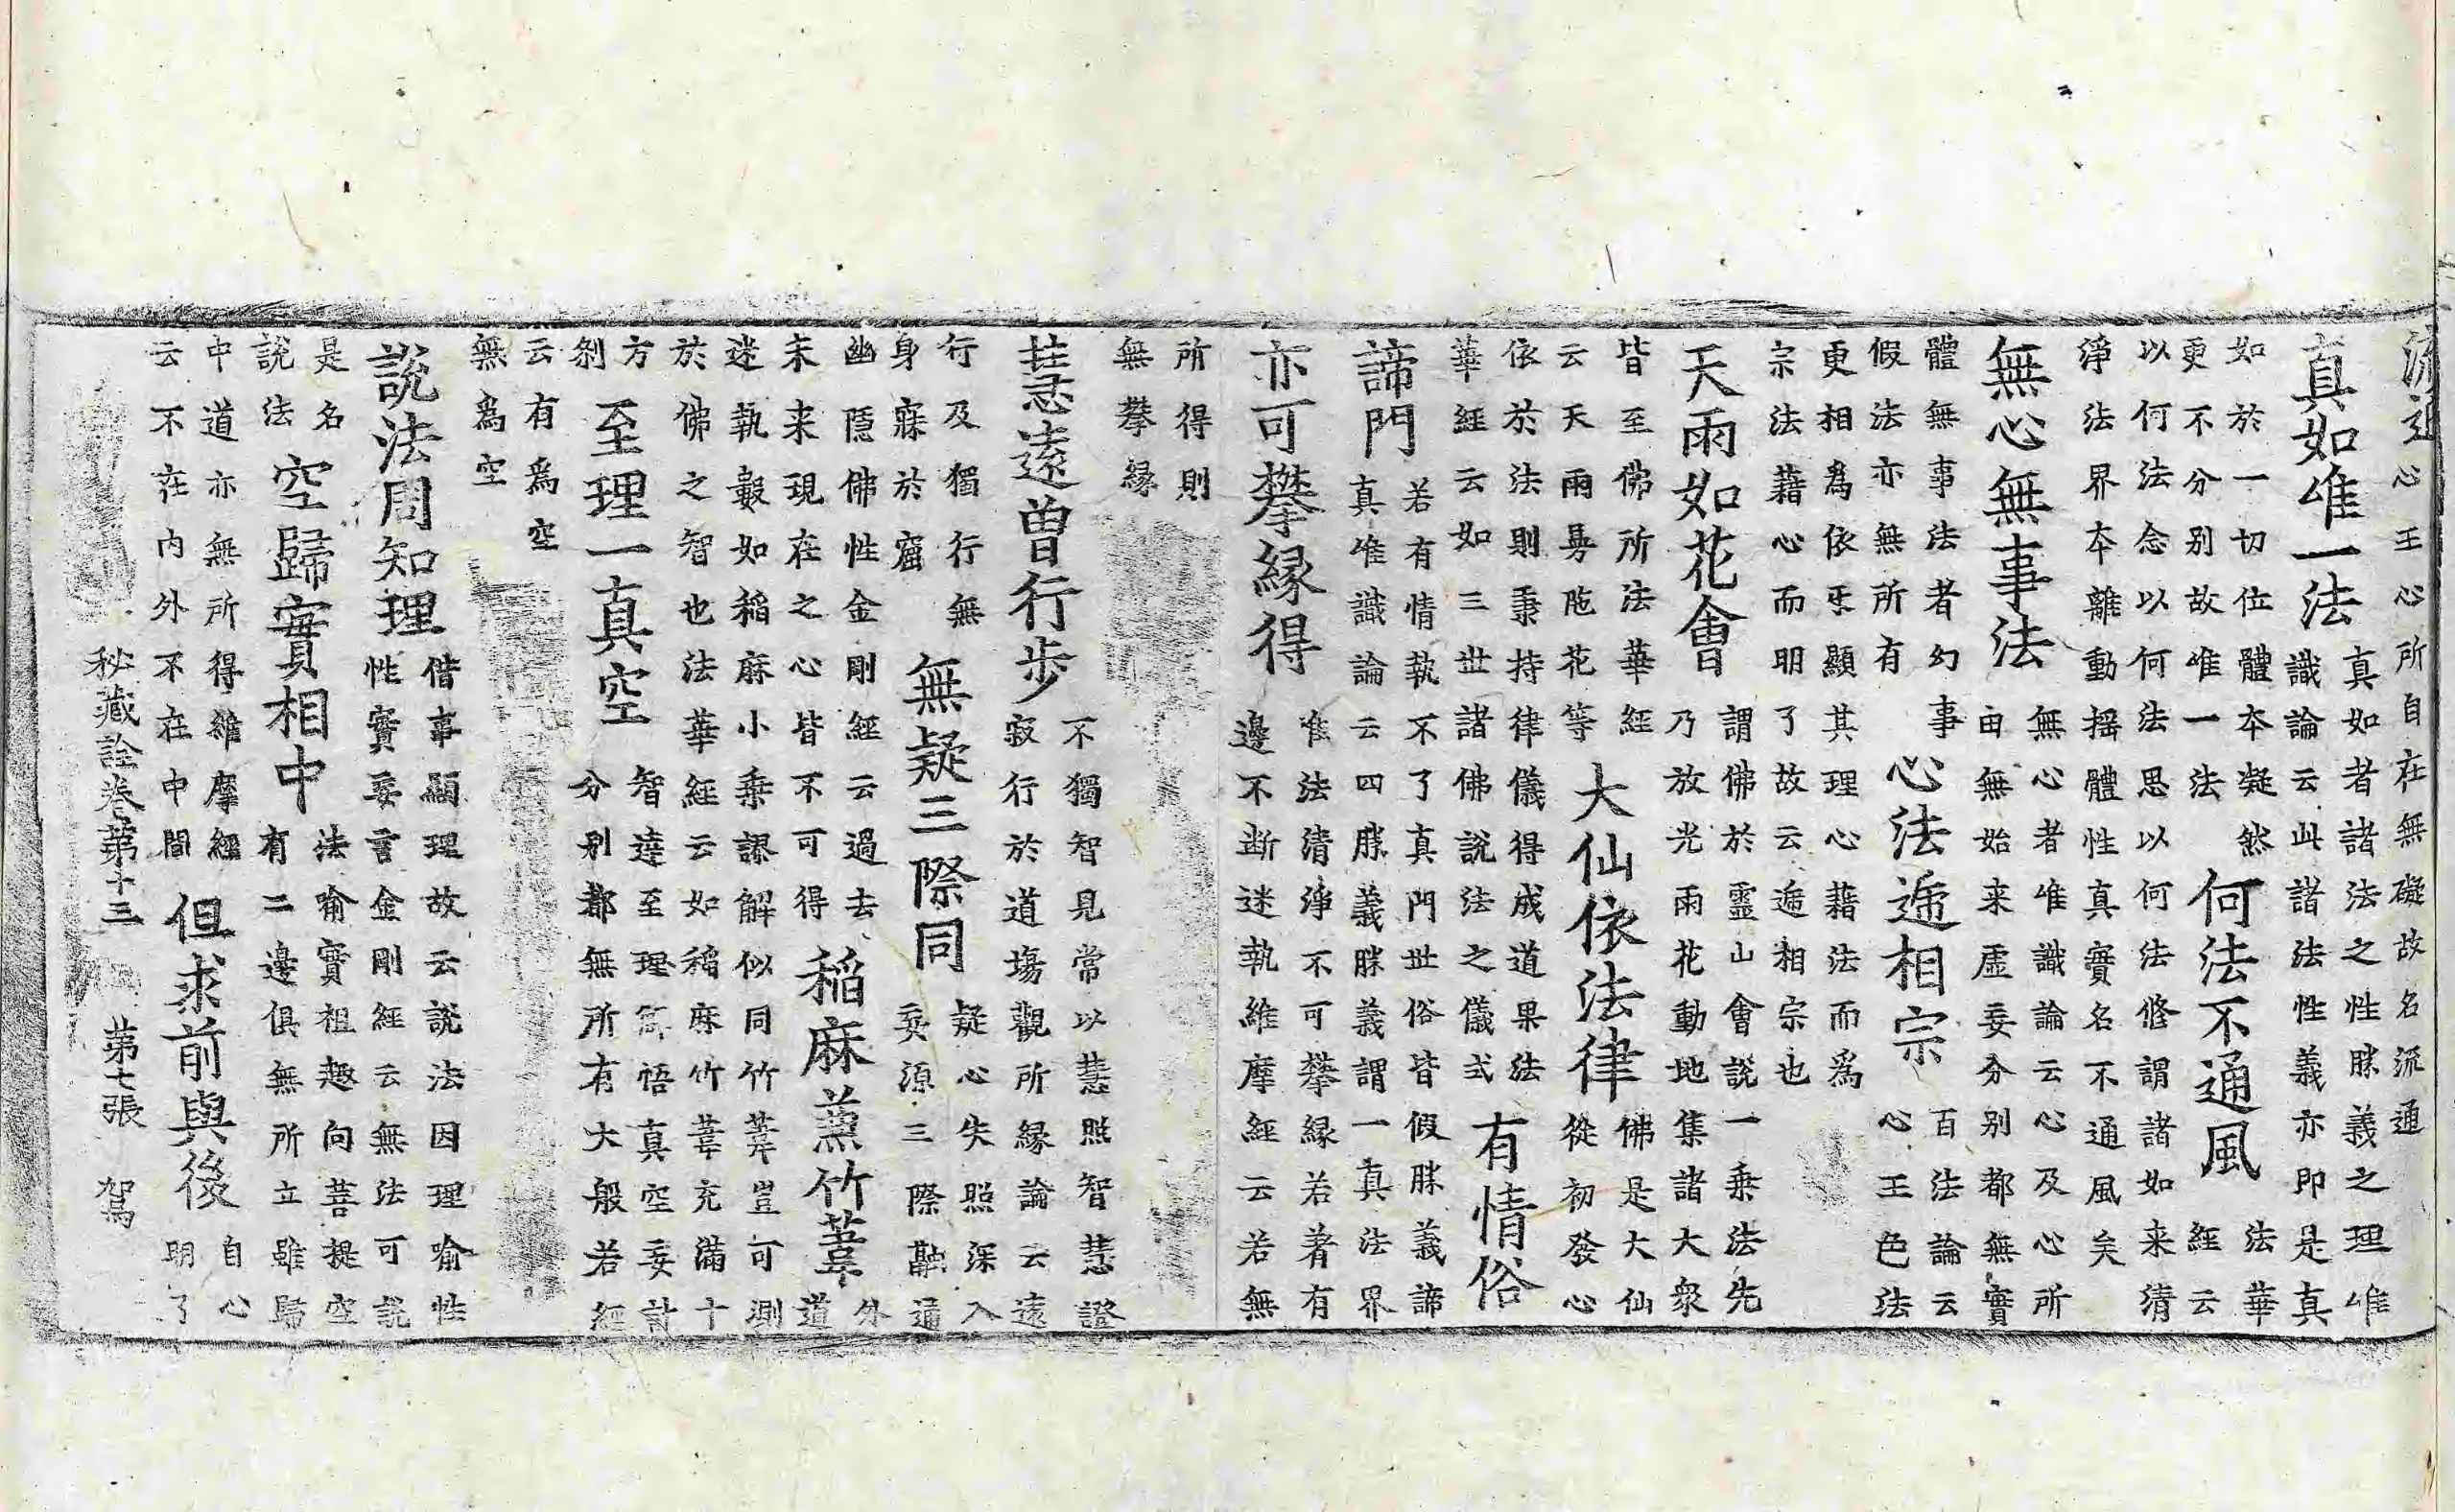 流通 心王心所自在無礙故名流通
真如唯一法
真如者諸法之性勝義之理唯
識論云此諸法性義亦即是真
如於一切位體本凝然
更不分别故唯一法
何法不通風
法華
經云
以何法念以何法思以何法修謂諸如来清
淨法界本離動揺體性真實名不通風矣
無心無事法
無心者唯識論云心及心所
由無始来虚妄分别都無實
體無事法者幻事
假法亦無所有
心法遞相宗
百法論云
心王色法
更相為依互顯其理心藉法而為
宗法藉心而明了故云遞相宗也
天雨如花會
謂佛於靈山會説一乗法先
乃放光雨花動地集諸大衆
皆至佛所法華經
云天雨曼陁花等
大仙依法律
佛是大仙
從初發心
依於法則秉持律儀得成道果法
華經云如三世諸佛説法之儀式
有情俗
諦門
若有情執不了真門世俗皆假勝義諦
真唯識論云四勝義勝義謂一真法界
亦可攀緣得
唯法清淨不可攀緣若著有
邊不断迷執維摩經云若無
所得則
無攀緣
慧遠曽行步
不獨智見常以慧照智慧證
寂行於道場觀所緣論云遠
行及獨行無
身寐於窟
無疑三際同
疑心失照深入
妄源三際融通
幽隱佛性金剛經云過去
未来現在之心皆不可得
稲麻薫竹葦
外
道
迷執數如稲麻小乗謬解似同竹葦豈可測
於佛之智也法華經云如稲麻竹葦充滿十
方
刹
至理一真空
智達至理高悟真空妄計
分别都無所有大般若經
云有為空
無為空
説法周知理
借事顯理故云説法因理喻性
性實妄言金剛經云無法可説
是名
説法
空歸實相中
法喻實祖趣向菩提空
有二邊俱無所立雖歸
中道亦無所得維摩經
云不在内外不在中間
但求前與後
自心
明了
秘藏詮卷第十三 第七張 駕